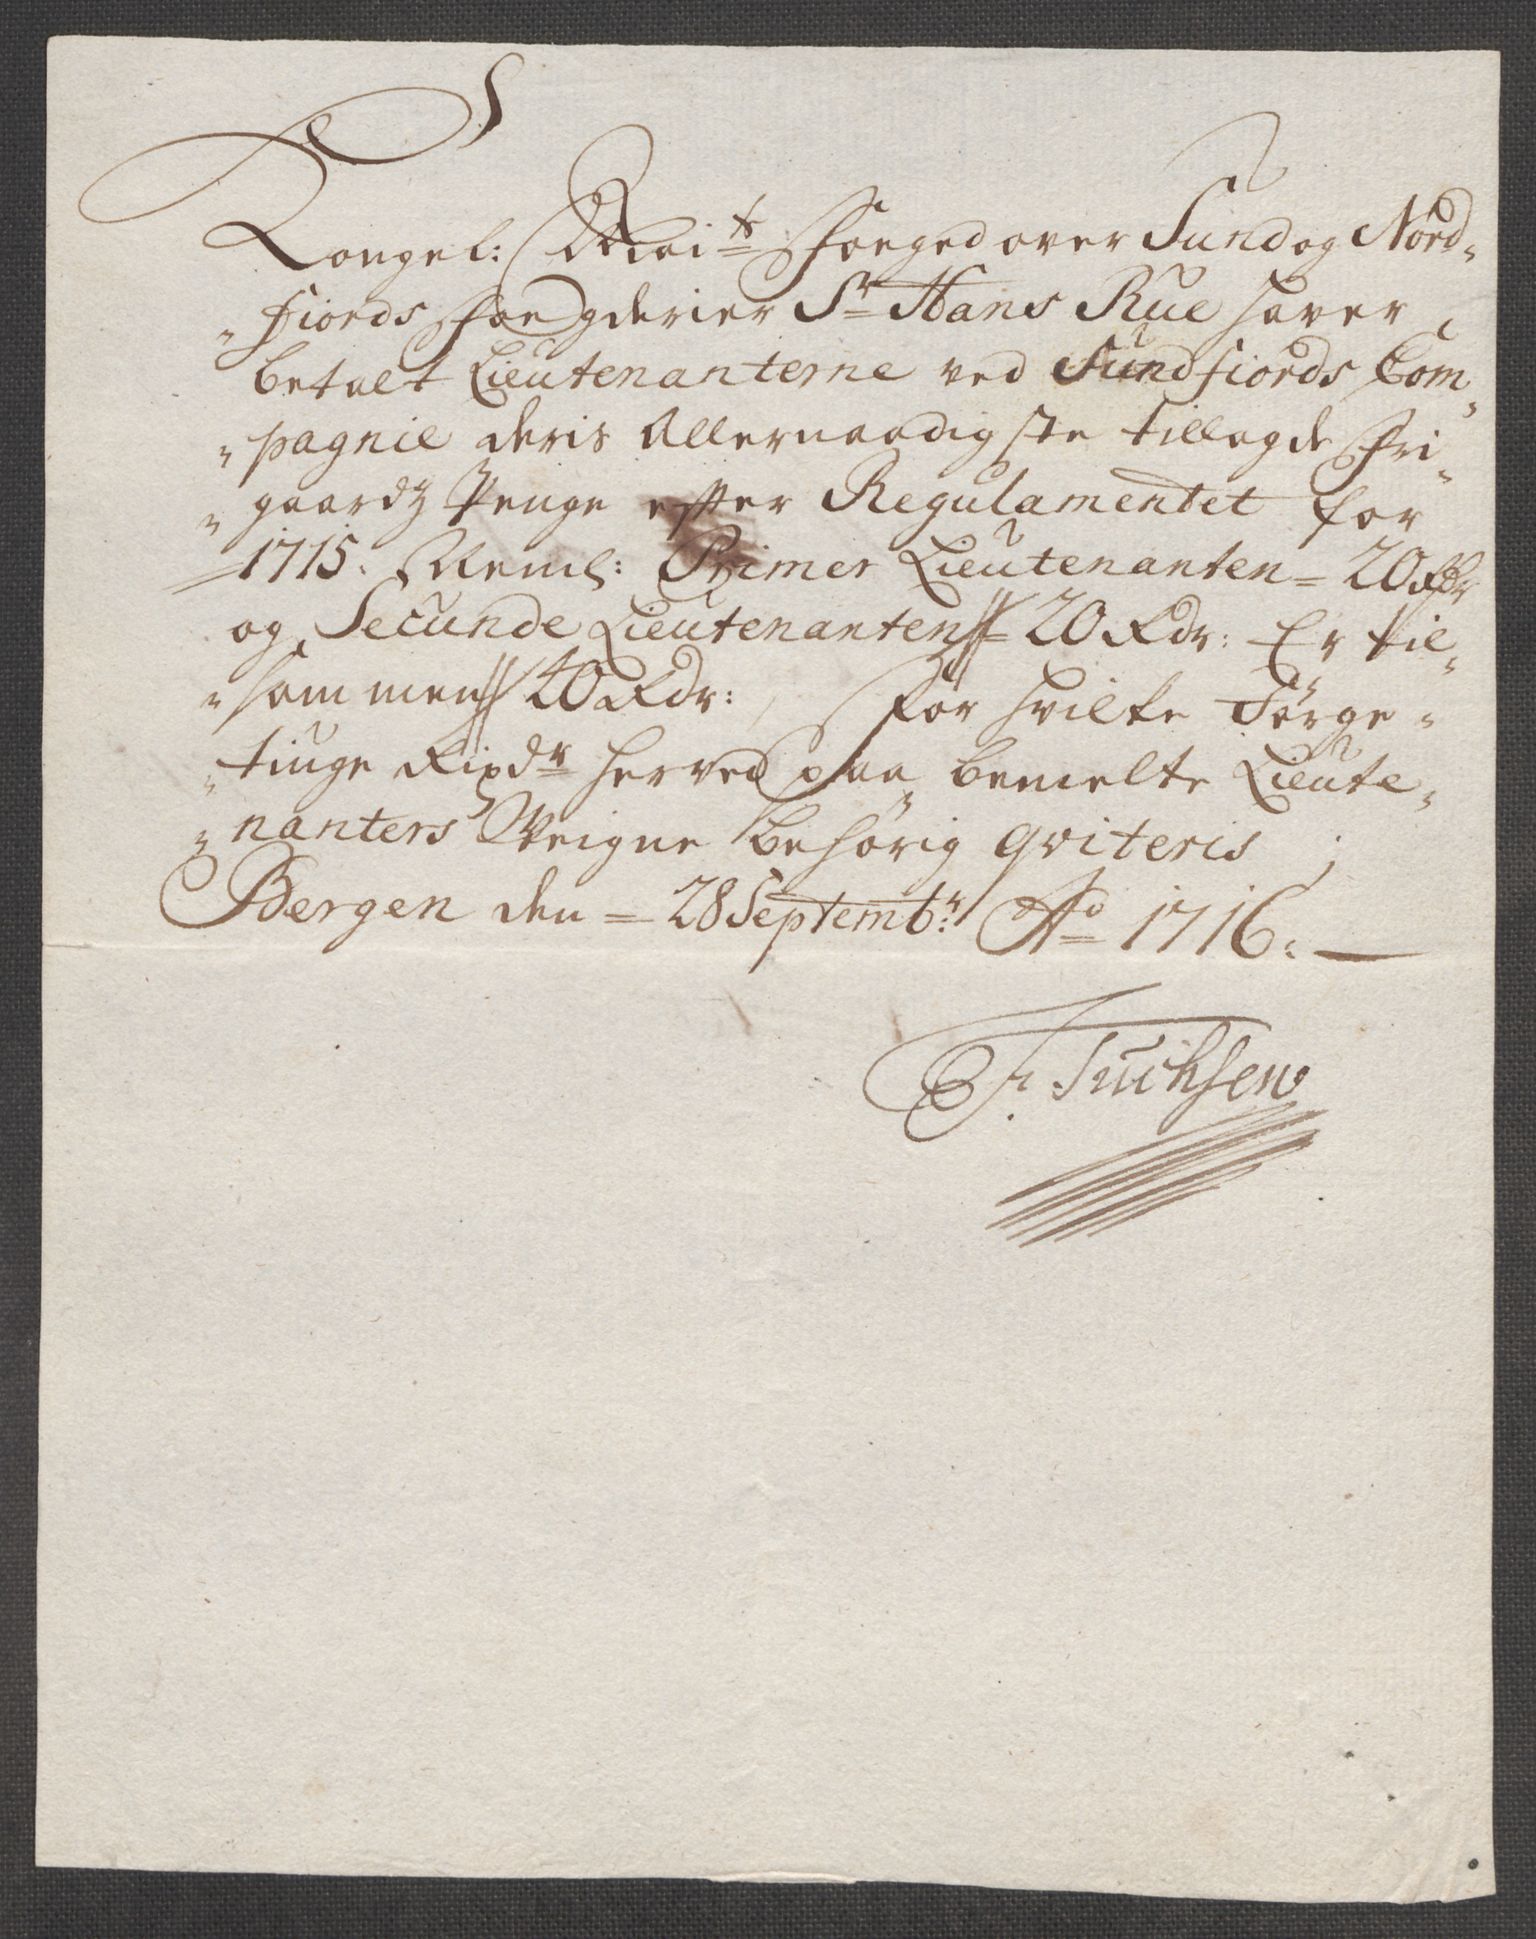 Kongel: Mai:t Foeged over Sund og Nord-
fiords Foegderier Sr Hans Rue haver
betalt Lieutenanterne ved Sundfiords Com-
pagnie deris Allernaadigste tillagde Fri-
gaardz Penge efter Regulamentet for
1715. Neml: Primer Lieutenanten = 20 Rdr
og Secunde Lieutenanten = 20 Rdr: Er til-
sammen 40 Rdr: For hvilke Førge-
tiuge Rixdr herved paa bemelte Lieute-
nanters Veigne behörig qviteris ;
Bergen den = 28 Septembr: Ao 1716. —
F. Tuchsen